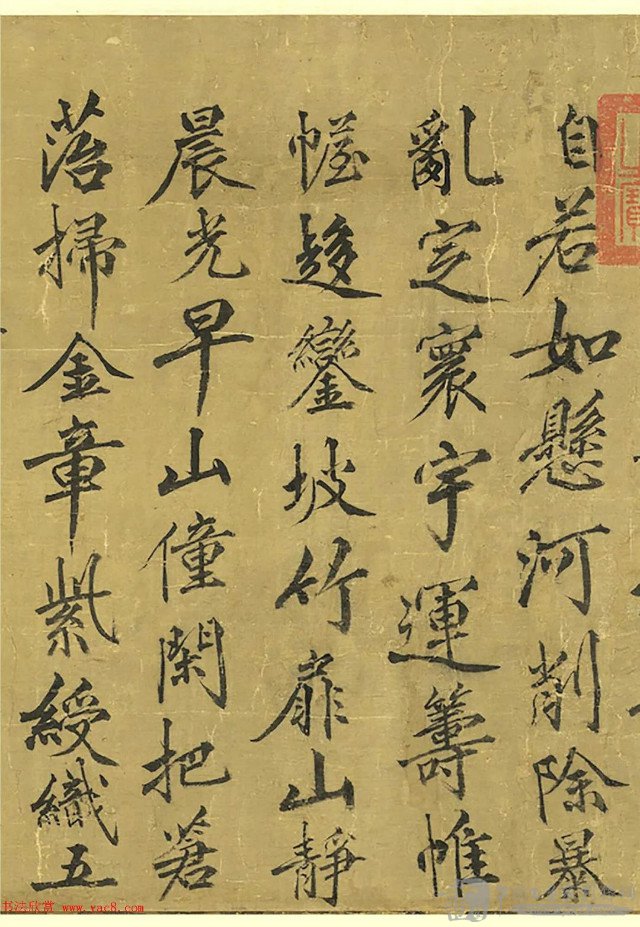 自若如懸河削除暴
亂定寰宇運籌帷
幄趍鑾坡竹扉山靜
晨光早山僮閑把箬
落掃金章紫綬織五
书法欣赏 www.yac8.com